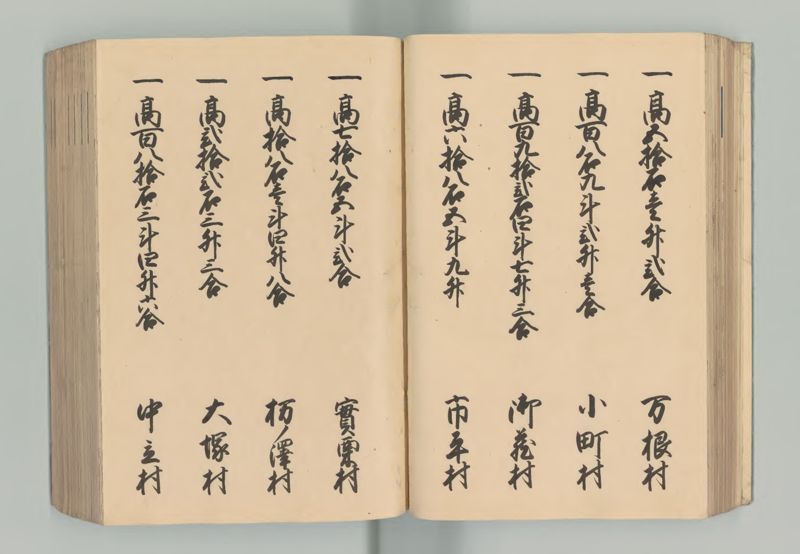 一高五拾石壱升弐合 万根村
一高百八石九斗弐升壱合 小町村
一高百九拾弐石四斗七升三合 御蔵村
一高六拾八石五斗九升 市平村
一高七拾八石五斗弐合 實栗村
一高拾八石壱斗四升八合 栃ノ澤村
一高弐拾弐石三升三合 大塚村
一高百八拾石三斗四升六合 中立村